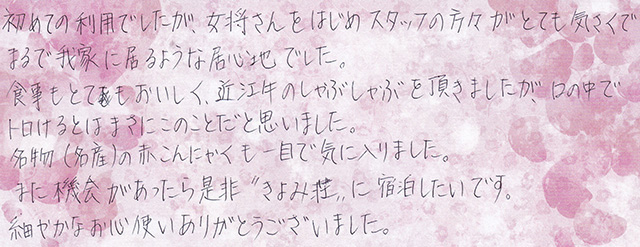 初めての利用でしたが、女将さんをはじめスタッフの方々がとても気さくで
まるで我家に居るような居心地でした。
食事もとてもおいしく、近江牛のしゃぶしゃぶを頂きましたが、口の中で
トロけるとはまさにこのことだと思いました。
名物(名産)の赤こんにゃくも一目で気に入りました。
また機会があったら是非〝きよみ荘〟に宿泊したいです。
細やかなお心使いありがとうございました。